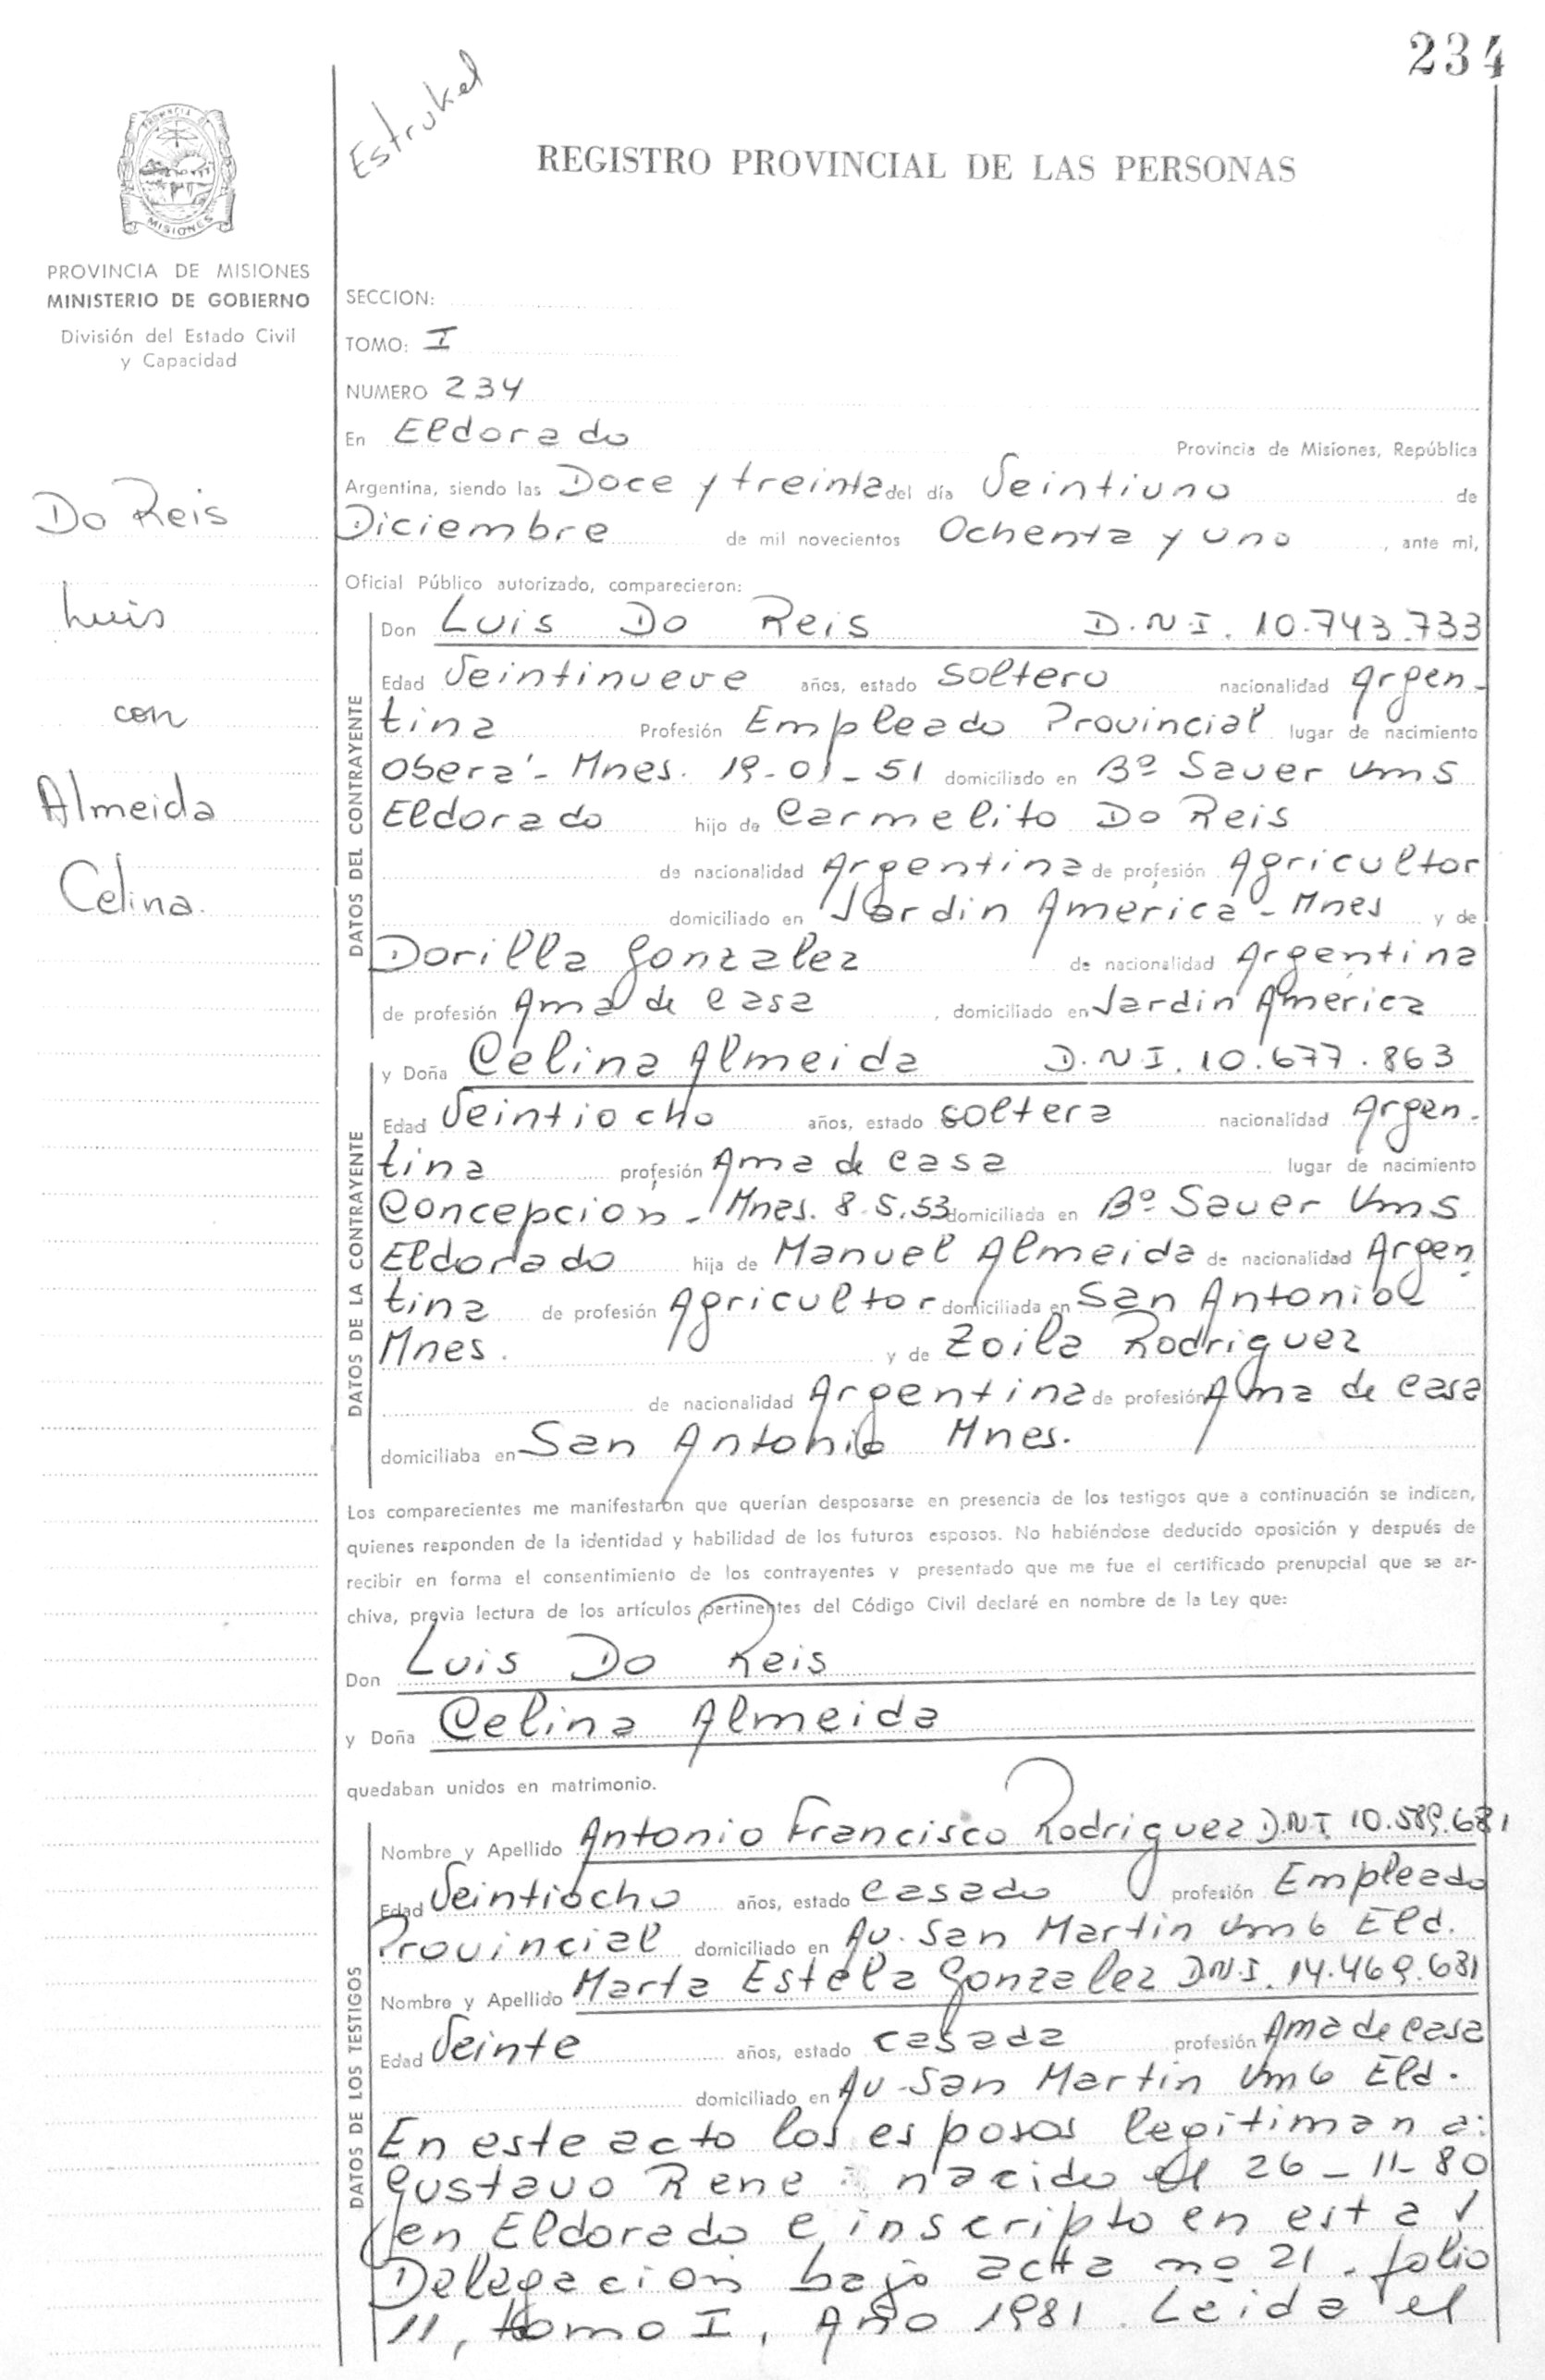 234
Estrukel
PROVINCIA DE
MISIONES
REGISTRO PROVINCIAL DE LAS PERSONAS
PROVINCIA DE MISIONES
MINISTERIO DE GOBIERNO
División del Estado Civil
y Capacidad
Do Reis
Luis
con
Almeida
Celina.
SECCION:
TOMO: I
NUMERO 234
En Eldorado Provincia de Misiones, República
Argentina, siendo las Doce y treinta del día Veintiuno de
Diciembre de mil novecientos Ochenta y uno, ante mi,
Oficial Público autorizado, comparecieron:
DATOS DEL CONTRAYENTE
Don Luis Do Reis D.N.I. 10.743.733
Edad Veintinueve años, estado soltero nacionalidad Argen-
tina Profesión Empleado Provincial lugar de nacimiento
Oberá - Mnes. 19-01-51 domiciliado en Bº Sauer Km 5
Eldorado hijo de Carmelito Do Reis
de nacionalidad Argentina de profesión Agricultor
domiciliado en Jardin America - Mnes y de
Dorilla Gonzalez de nacionalidad Argentina
de profesión Ama de casa, domiciliado en Jardin America
DATOS DE LA CONTRAYENTE
y Doña Celina Almeida D.N.I. 10.677.863
Edad Veintiocho años, estado soltera nacionalidad Argen-
tina profesión Ama de casa lugar de nacimiento
Concepcion - Mnes. 8.5.53 domiciliada en Bº Sauer Km 5
Eldorado hija de Manuel Almeida de nacionalidad Argen
tina de profesión Agricultor domiciliada en San Antonio
Mnes. y de Zoila Rodriguez
de nacionalidad Argentina de profesión Ama de casa
domiciliaba en San Antonio Mnes.
Los comparecientes me manifestaron que querían desposarse en presencia de los testigos que a continuación se indican,
quienes responden de la identidad y habilidad de los futuros esposos. No habiéndose deducido oposición y después de
recibir en forma el consentimiento de los contrayentes y presentado que me fue el certificado prenupcial que se ar-
chiva, previa lectura de los artículos pertinentes del Código Civil declaré en nombre de la Ley que:
Don Luis Do Reis
y Doña Celina Almeida
quedaban unidos en matrimonio.
DATOS DE LOS TESTIGOS
Nombre y Apellido Antonio Francisco Rodriguez D.N.I. 10.589.681
Edad Veintiocho años, estado casado profesión Empleado
Provincial domiciliado en Av. San Martin Km 6 Eld.
Nombre y Apellido Marta Estela Gonzalez D.N.I. 14.469.681
Edad Veinte años, estado casada profesión Ama de casa
domiciliado en Av. San Martin Km 6 Eld.
En este acto los esposos legitiman a:
Gustavo Rene nacido el 26-11-80
en Eldorado e inscripto en esta
Delegacion bajo acta nº 21, folio
11, tomo I, Año 1981. Leida el